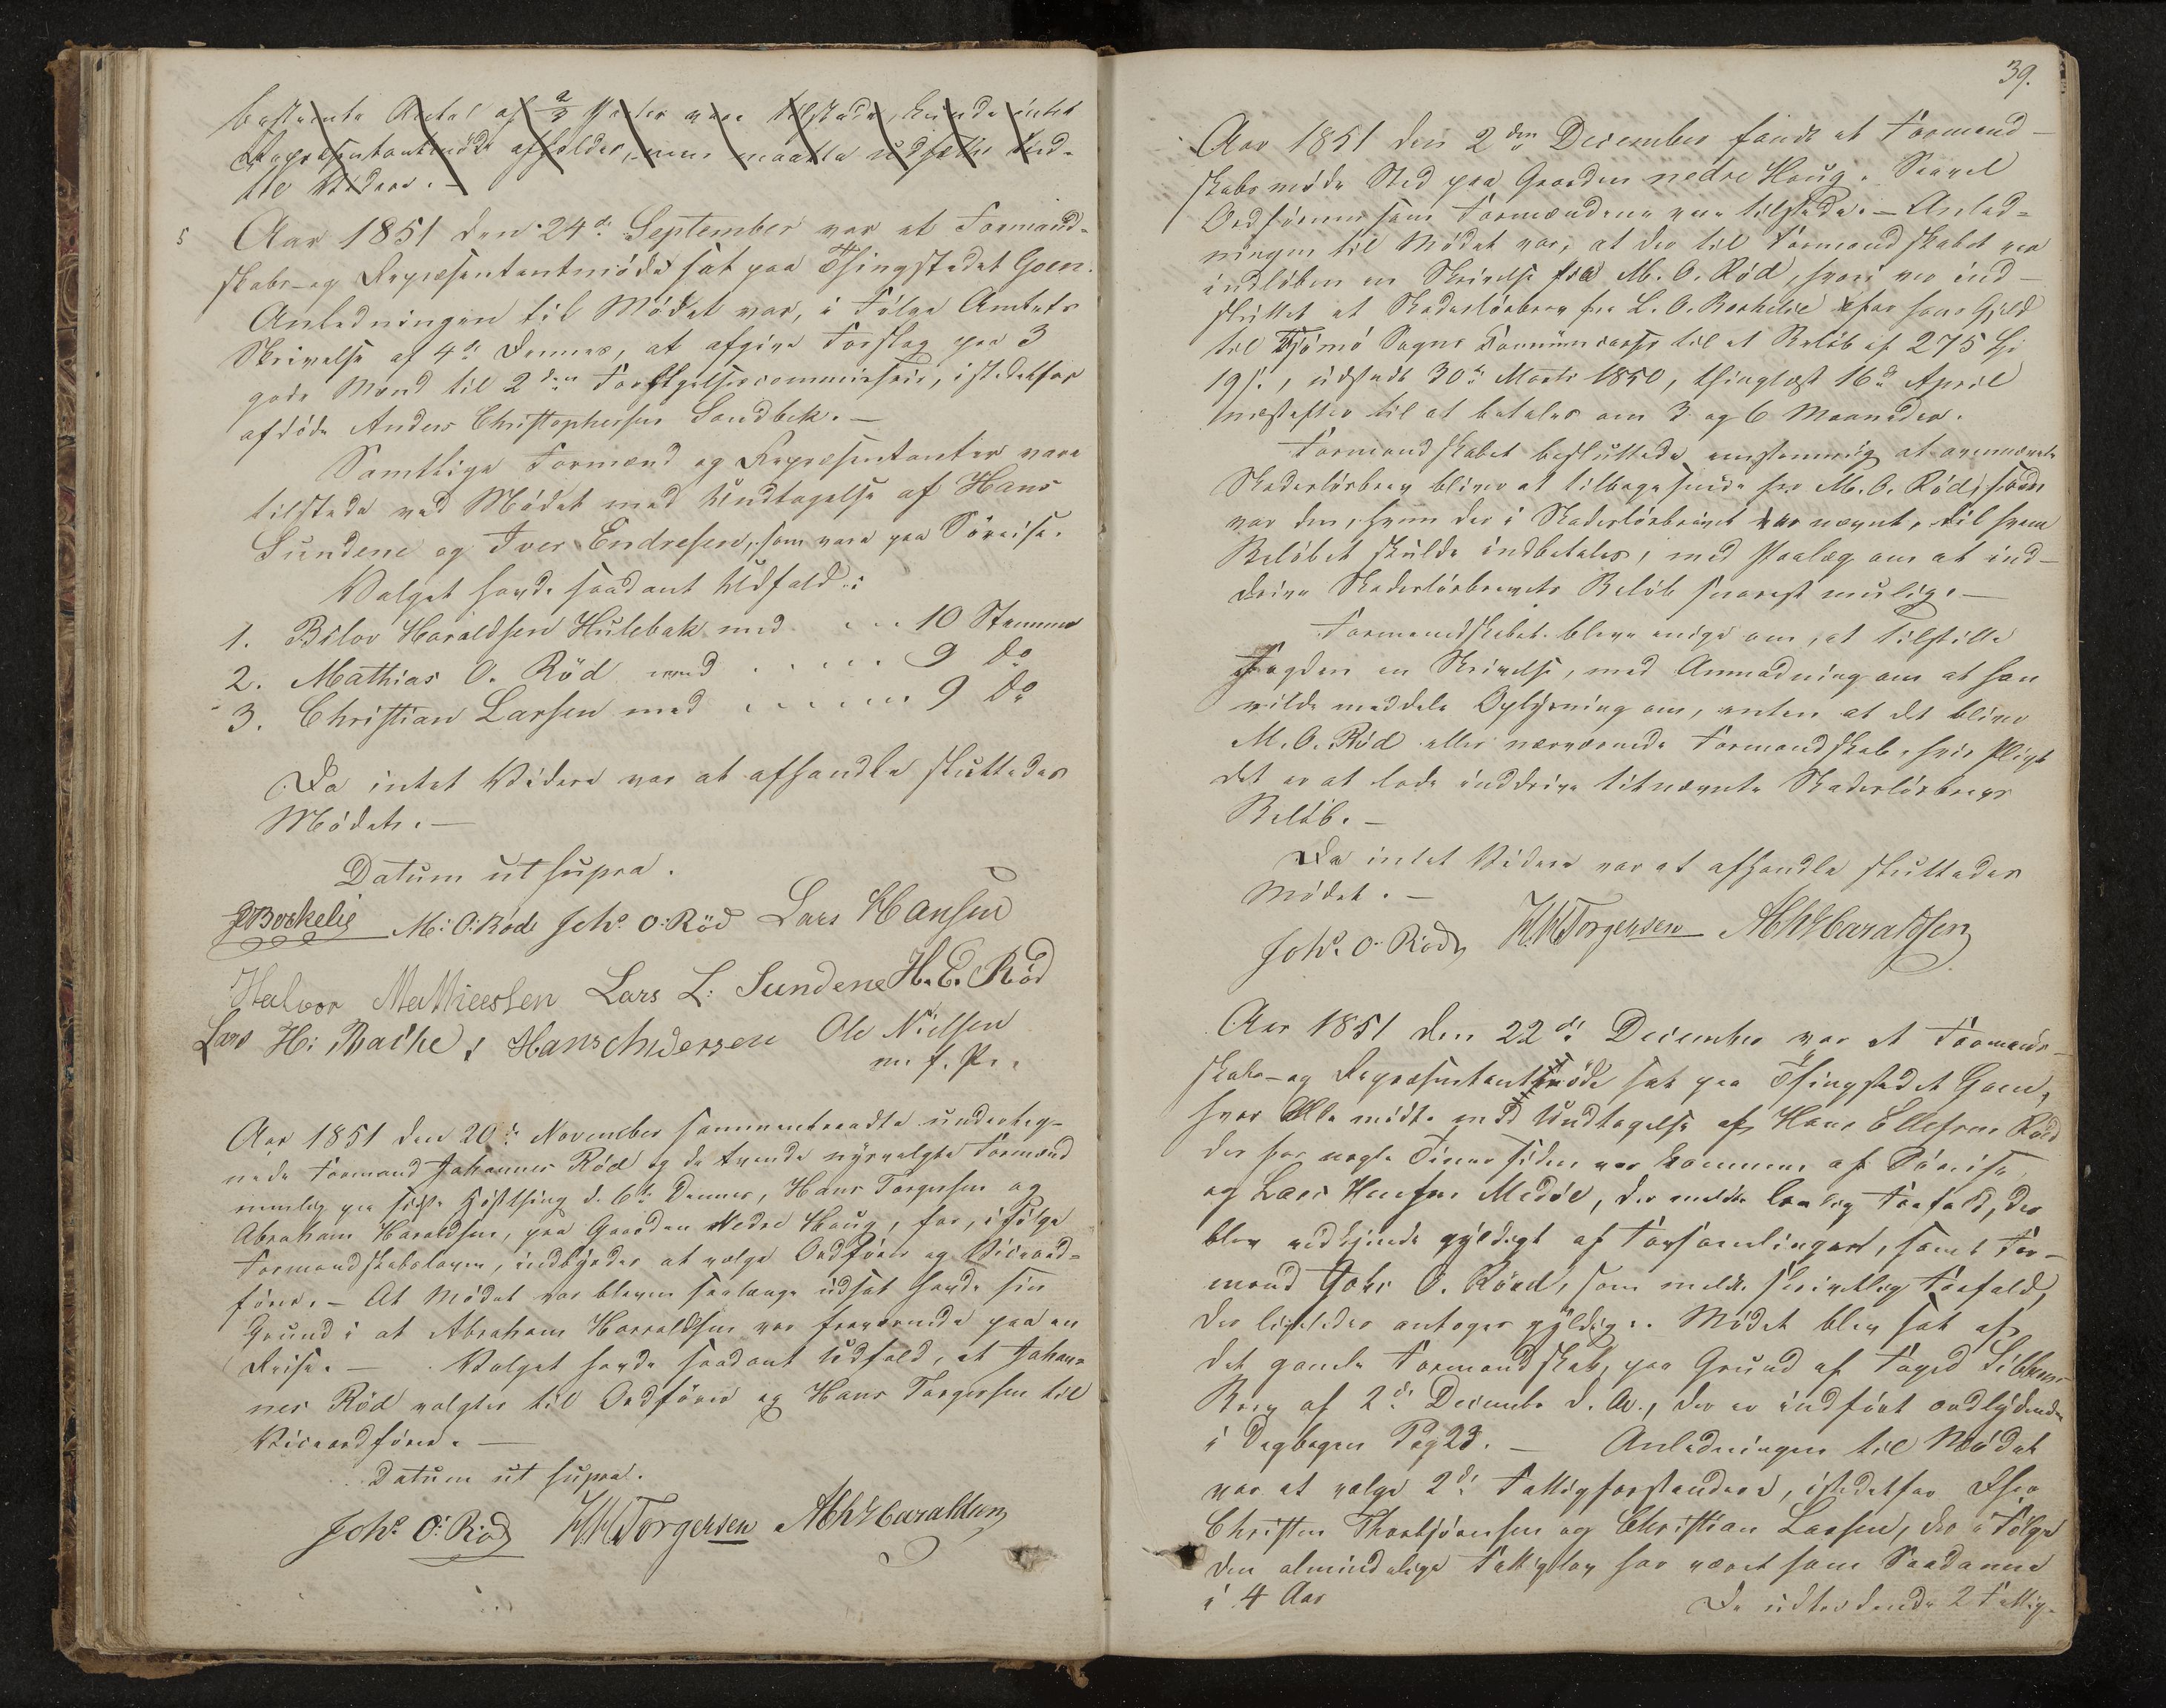 bestemte Antal af 2/3 Parter vare tilstede, kunde intet
Repræsentantmöde afholdes, men maatte udsættes ind-
til Videre. —
5 Aar 1851 den 24de September var et Formand-
skabs- og Repræsentantmöde sat paa Thingstedet Goen.
Anledningen til Mödet var, i Fölge Amtets
Skrivelse af 4de Dennes, at afgive Forslag paa 3
gode Mænd til 2den Forligelsescommissair, istedetfor
afdöde Anders Christophersen Sandbek. —
Samtlige Formænd og Repræsentanter vare
tilstede ved Mödet med Undtagelse af Hans
Sundene og Iver Endresen, som vare paa Söreise.
Valget havde saadant Udfald:
1. Bilov Haraldsen Hulebak med . . . 10 Stemmer
2. Mathias O. Röd med . . . . . 9 do
3. Christian Larsen med . . . . . . 9 do
Da intet Videre var at afhandle sluttedes
Mödet. —
Datum ut supra.
Borkelie M: O: Röd Johs. O: Röd Lars Hansen
Halvor Mathiessen Lars L: Sundene H. E. Röd
Lars H: Bache, Hans Andersen Ole Nielsen
m. f. P.
Aar 1851 den 20de November sammentraadte underteg-
nede Formand Johannes Röd og de tvende nysvalgte Formænd
nemlig paa sidste Höstthing d. 6te Dennes, Hans Torgersen og
Abraham Haraldsen, paa Gaarden Nedre Haug, for, ifölge
Formandskabsloven, indbyrdes at vælge Ordförer og Viceord-
förer. — At Mödet var bleven saalænge udsat havde sin
Grund i at Abraham Harraldsen var fraværende paa en
Reise. — Valget havde saadant Udfald, at Johan-
nes Röd valgtes til Ordförer og Hans Torgersen til
Viceordförer. —
Datum ut supra.
Johs. O: Röd H. Torgersen Abh Haraldsen
39.
Aar 1851 den 2den December fandt et Formand-
skabsmöde Sted paa Gaarden nedre Haug. Saavel
Ordföreren som Formændene vare tilstede. — Anled-
ningen til Mödet var, at der til Formandskabet var
indlöben en Skrivelse fra M. O. Röd, hvori var ind-
sluttet et Skadeslösbrev fra L. O. Borkelie for hans Gjeld
til Tjömö Sogns Communecasse til et Belöb af 275
19 s., udstedt 30te Marts 1850, thinglæst 16de April
næstefter til at betales om 3 og 6 Maaneder.
Formandskabet besluttede eenstemmig at ovennævnte
Skadeslösbrev bliver at tilbagesende hr M. O. Röd, som
var den, hvem der i Skadeslösbrevet var nævnt, til hvem
Belöbet skulde indbetales, med Paalæg om at ind-
drive Skadeslösbrevets Belöb snarest mulig. —
Formandskabet bleve enige om, at tilstille
Fogden en Skrivelse, med Anmodning om at han
vilde meddele Oplysning om, enten at det bliver
M. O. Röd eller nærværende Formandskab, hvis Pligt
det er at lade inddrive titnævnte Skadeslösbrevs
Belöb. —
Da intet Videre var at afhandle sluttedes
Mödet. —
Johs. O. Röd H. Torgersen Abh Haraldsen
Aar 1851 den 22de December var et Formand-
skabs- og Repræsentantmöde sat paa Thingstedet Goen,
hvor Alle mödte med Undtagelse af Hans Ellefsen Röd
der for nogle Timer siden var kommen af Söreise
og Lars Hansen Medöe, der meldte lovlig Forfald, der
blev erkjendt gyldigt af Forsamlingen, samt For-
mand Johs O. Röed, som meldte skriftlig Forfald,
der ligeledes antoges gyldig. Mödet blev sat af
det gamle Formandskab, paa Grund af Foged
Brev af 2de December d. A., der er indfört ordlydende
i Dagbogen Pag 23. — Anledningen til Mödet
var at vælge 2de Fattigforstandere, istedetfor
Christen Thorbjörnsen og Christian Larsen, der i Fölge
den almindelige Fattiglov har været som Saadanne
i 4 Aar
De udtrædende 2 Fattig-